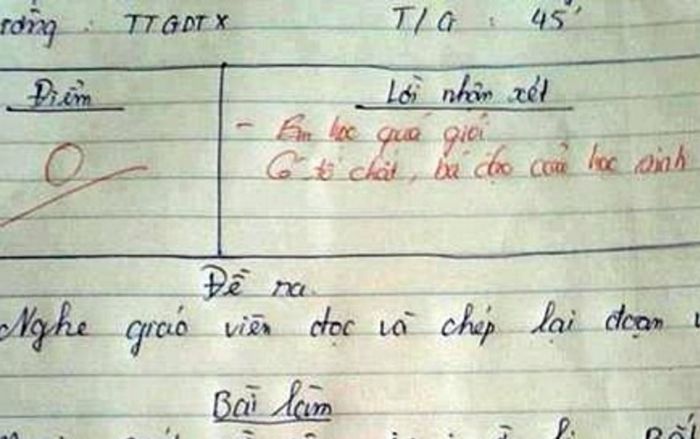 TTGDTX T/G : 45'
Điểm Lời nhận xét
- Em học quá giỏi
0 Có tố chất, bá đạo của học sinh
Đề ra
Nghe giáo viên đọc và chép lại đoạn
Bài làm